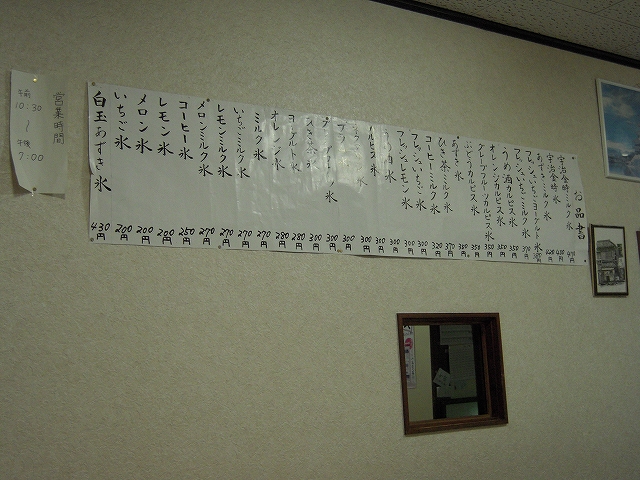 お品書
宇治金時ミルク氷
宇治金時氷
あずきミルク氷
フレッシュいちごヨーグルト氷 380円
フレッシュいちごミルク氷 370円
うめ酒カルピス氷 350円
オレンジカルピス氷 350円
グレープフルーツカルピス氷 350円
ぶどうカルピス氷 350円
あずき氷
ひき茶ミルク氷 370円
コーヒーミルク氷 320円
フレッシュいちご氷 300円
フレッシュレモン氷 300円
うめ酒氷 300円
カルピス氷 300円
300円
300円
300円
ひき茶氷 300円
ヨーグルト氷 280円
オレンジ氷 280円
ミルク氷 270円
いちごミルク氷 270円
レモンミルク氷 270円
メロンミルク氷 270円
コーヒー氷 250円
レモン氷 200円
メロン氷 200円
いちご氷 200円
白玉あずき氷 430円
営業時間
午前
10:30
〜
午後
7:00